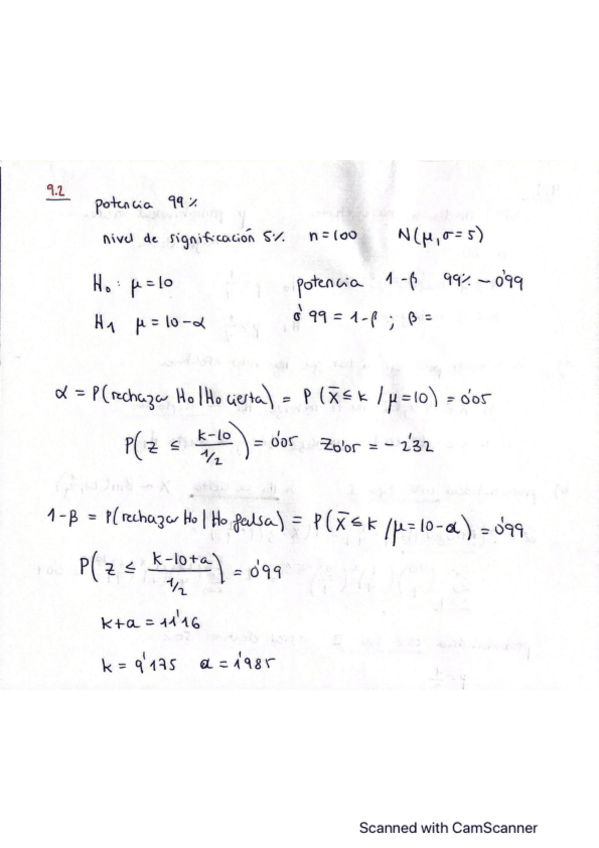 9.2
potencia 99%
nivel de significación 5% n=100 N(μ, σ=5)
H₀: μ=10 potencia 1-β 99% - 0'99
H₁ μ=10-α 0'99 = 1-β ; β =
α = P(rechazar H₀ | H₀ cierta) = P(X̄ ≤ k / μ=10) = 0'05
P(Z ≤ (k-10)/(1/2)) = 0'05 Z₀'₀₅ = -2'32
1-β = P(rechazar H₀ | H₀ falsa) = P(X̄ ≤ k / μ=10-α) = 0'99
P(Z ≤ (k-10+a)/(1/2)) = 0'99
k+a = 11'16
k = 9'175 a = 1'985
Scanned with CamScanner